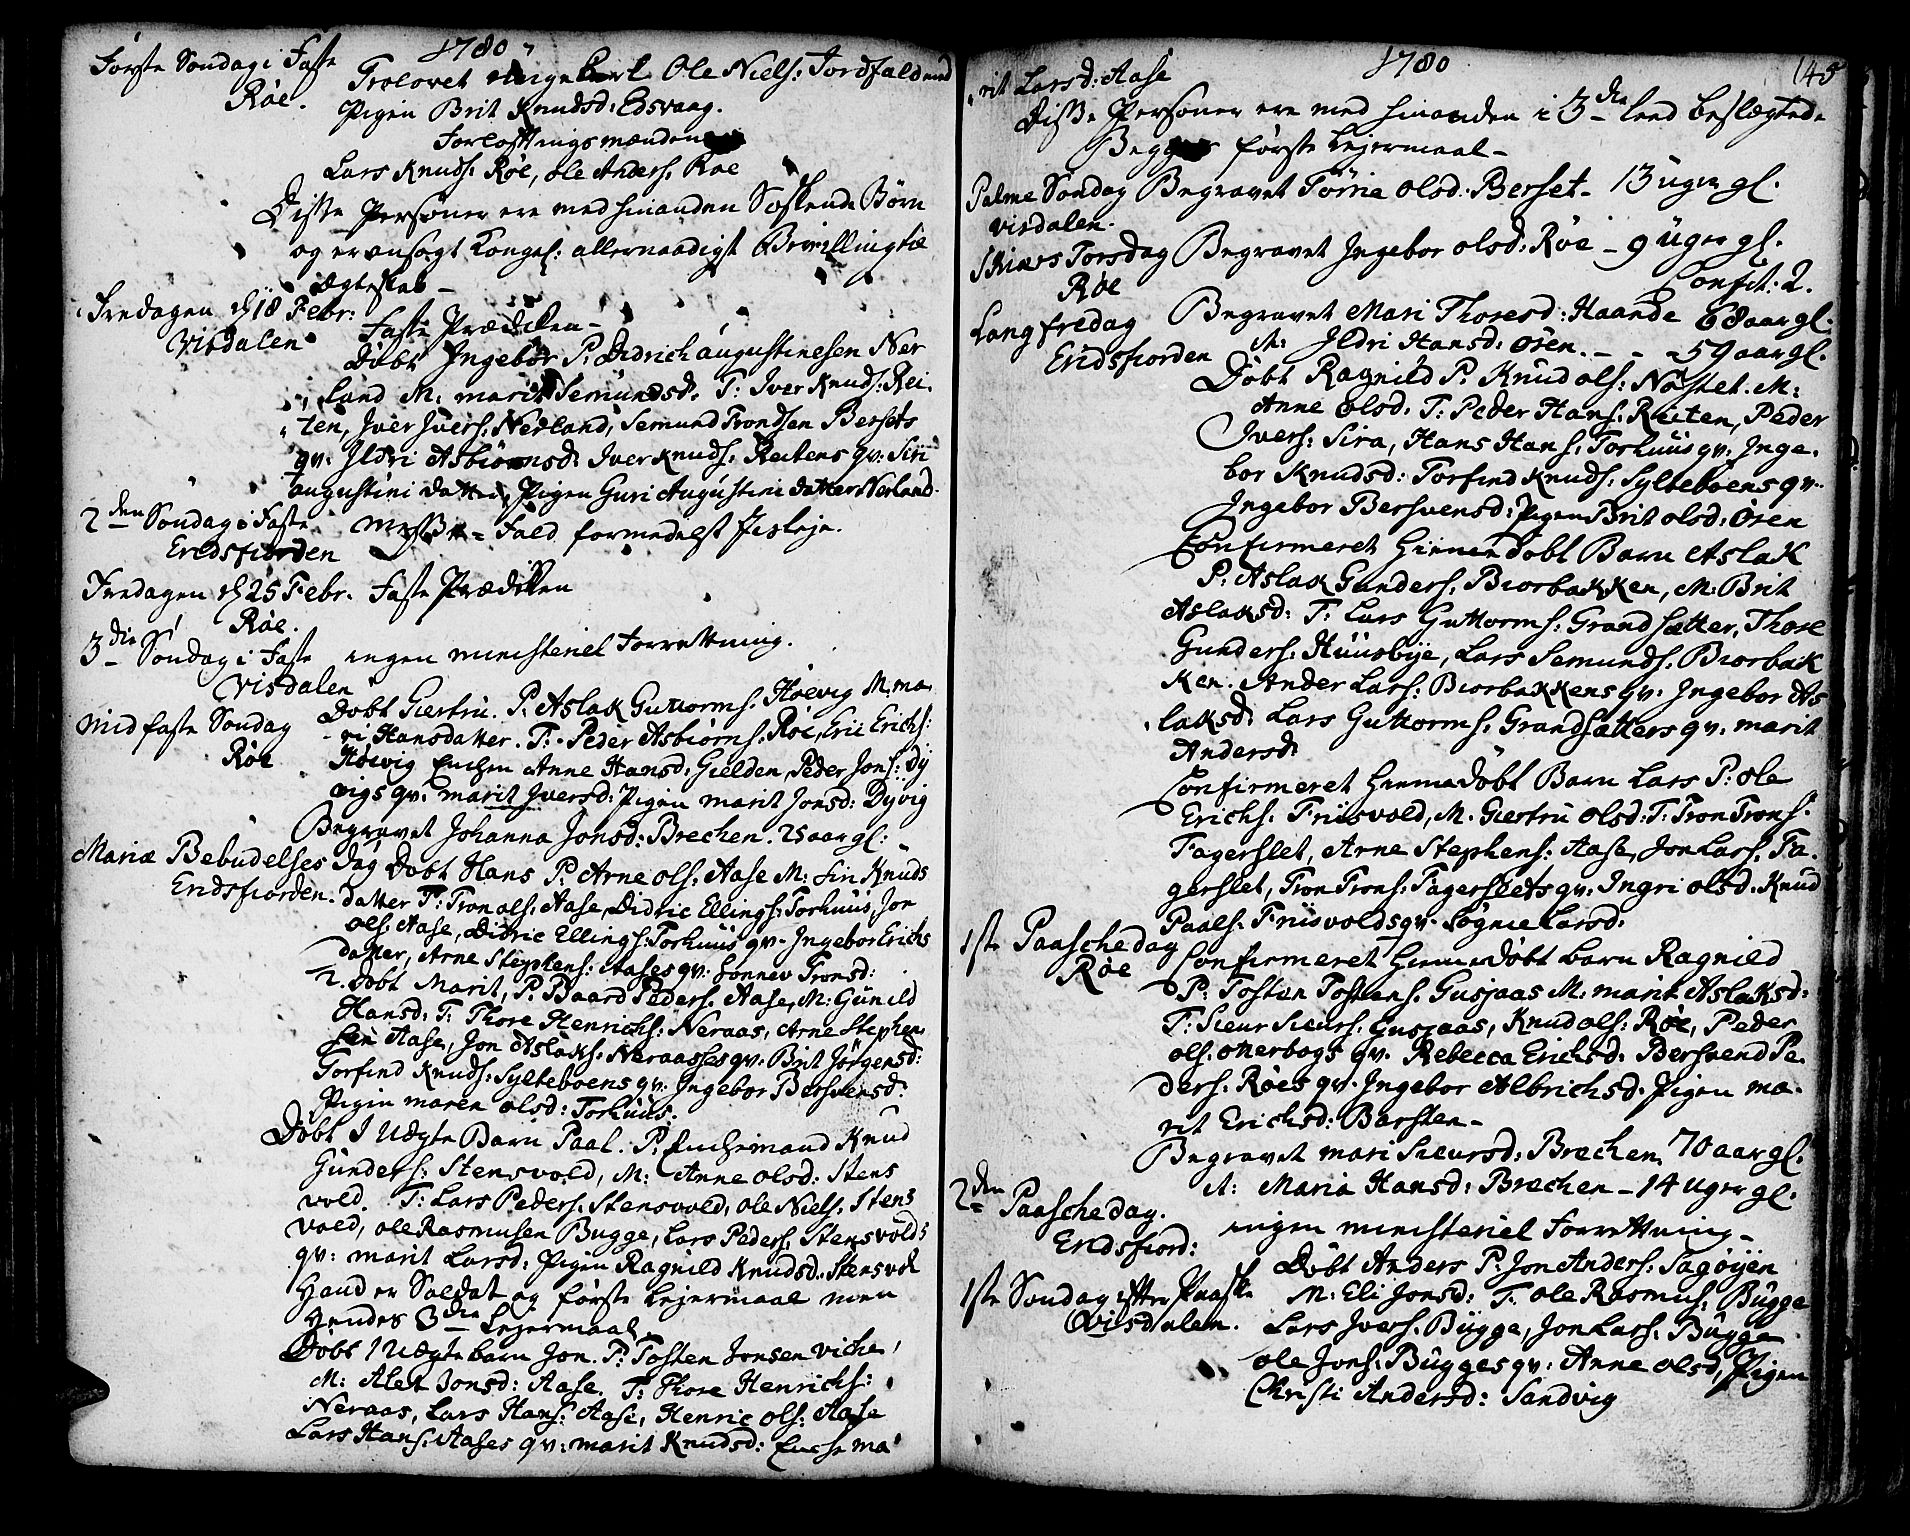 1780
Første Søndag i Faste
Røe.
Trolovet Ungekarl Ole Niels: Jordfald med
Pigen Brit Knudsd: Edsvaag.
Forlostningsmænden
Lars Knuds: Røe, Ole Anders: Røe
Disse Personer ere med hinanden Søskende Børn
og er ansøgt Kongel: allernaadigst Bevillingtil
Ægteskab –
Fredagen d 18 Febr:
Visdalen
Faste Prædiken –
Døbt Ingebor P: Didrich Augustinesen Ner
land M: marit Semundsd. T: Iver Knuds: Rei
ten, Iver Ivers: Nerland, Semund Trondsen Bersets
qv: Ildri Asbiørnsd: Iver Knuds: Reitens qv: Siri
augustini datter, Pigen Guri Augustini datter Nerland.
2den Søndag i Faste
Eridsfiorden
Messe-Fald formedelst Isleje.
Fredagen d 25 Febr. Faste Prædiken
Røe.
3die Søndag i Faste ingen ministeriel Forrettning.
Visdalen
Midfaste Søndag
Røe
Døbt Giertru. P: Aslak Guttorms: Høevig M: ma
ri Hansdatter. T: Peder Asbiørns: Røe, Eric Erichs:
Høevig Enchen Anne Hansd: Gielden, Peder Jons: Dy
vigs qv: marit Iversd: Pigen marit Jonsd: Dyvig
Begravet Johanna Jonsd: Brechen. 25 aar gl:
Mariæ Bebudelses Dag
Eridsfiorden.
Døbt Hans P: Arne ols: Aase M: Siri Knuds
datter T: Tron ols: Aase, Didric Ellings: Torhuus, Jon
ols: Aase, Didric Ellings: Torhuus qv: Ingebor Erichs
datter, Arne Stephens: Aases qv: Sønnev Tronsd:
2. Døbt Marit, P: Baard Peders: Aase, M: Gunild
Hansd: T: Thore Henrichs: Neraas, Arne Stephen
sen Aase, Jon Aslaks: Neraasses qv: Brit Jørgensd:
Torfind Knuds: Sylteboens qv: Ingebor Bersvensd:
Pigen maren olsd: Torhuus.
Døbt 1 Uægte Barn Paal. P: Enchemand Knud
Gunders: Stensvold, M: Anne olsd: Stens
vold. T: Lars Peders: Stensvold, Ole Niels: Stens
vold, ole Rasmusen Bugge, Lars Peders: Stensvolds
qv: marit Larsd: Pigen Ragnild Knudsd: Stensvol
Hand er Soldat og første Lejermaal men
Hendes 3die Lejermaal.
Døbt 1 Uægte barn Jon. P: Tosten Jonsen Viche,
M: Alet Jonsd: Aase. T: Thore Henrichs:
Neraas, Lars Hans: Aase, Henric ols: Aase
Lars Hans: Aases qv: marit Knudsd: Enche ma
1780
145
rit Larsd: Aase
Disse Personer ere med hinanden i 3die leed beslegtede
Begges første Lejermaal –
Palme Søndag
Visdalen.
Begravet Tørrie Olsd: Berset – 13 uger gl.
Skiærs Torsdag
Røe
Begravet Ingebor olsd: Røe – 9 Uger gl.
Confit: 2.
Langfredag
Eridsfiorden
Begravet Mari Thoresd: Haande 68 aar gl.
A: Ildri Hansd: Øren. – – 59 aar gl.
Døbt Ragnild P: Knud ols: Nøstet. M:
Anne Olsd. T: Peder Hans: Reiten, Peder
Ivers: Sira, Hans Hans: Torhuus qv: Inge
bor Knudsd: Torfind Knuds: Sylteboens qv.
Ingebor Bersvensd: Pigen Brit olsd: Øren
Confirmeret Hiemmedøbt Barn Aslak
P: Aslak Gunders: Biorbakken, M: Brit
Aslaksd: T: Lars Guttorms: Grandsætter, Thore
Gunders: Huusbye, Lars Semunds: Biorbak
ken. Ander Lars: Biorbakkens qv: Ingebor As
laksd: Lars Guttorms: Grandsætters qv: marit
Andersd
Confirmeret Hiemmedøbt Barn Lars P: Ole
Erichs: Friisvold, M. Giertru olsd: T: Tron Trons:
Fagerslet, Arne Stephens: Aase, Jon Lars: Fa
gerslet, Tron Trons: Fagerslets qv: Ingri olsd: Knud
Paals: Friisvolds qv: Sognie Larsd:
1ste Paaschedag
Røe
Confirmeret Hiemmedøbt Barn Ragnild
P: Tosten Tostens: Gusjaas M: marit Aslaksd:
T: Siur Siurs: Gusjaas, Knud ols: Røe, Peder
ols: otterbogs qv: Rebecca Erichsd: Bersvend Pe
ders: Røes qv: Ingebor Albrichsd: Pigen ma
rit Erichsd: Barsten –
Begravet mari Siursd: Brechen 70 aar gl.
A: Maria Hansd: Brechen – 14 uger gl.
2den Paaschedag.
Eridsfiord:
ingen ministeriel Forrettning –
1ste Søndag efter Paaske
Visdalen.
Døbt Anders P: Jon Anders: Sagøyen
M: Eli Jonsd: T: Ole Rasmus: Bugge
Lars Ivers: Bugge, Jon Lars: Bugge
Ole Jons: Bugges qv: Anne Olsd, Pigen
Christi Andersd: Sandvig